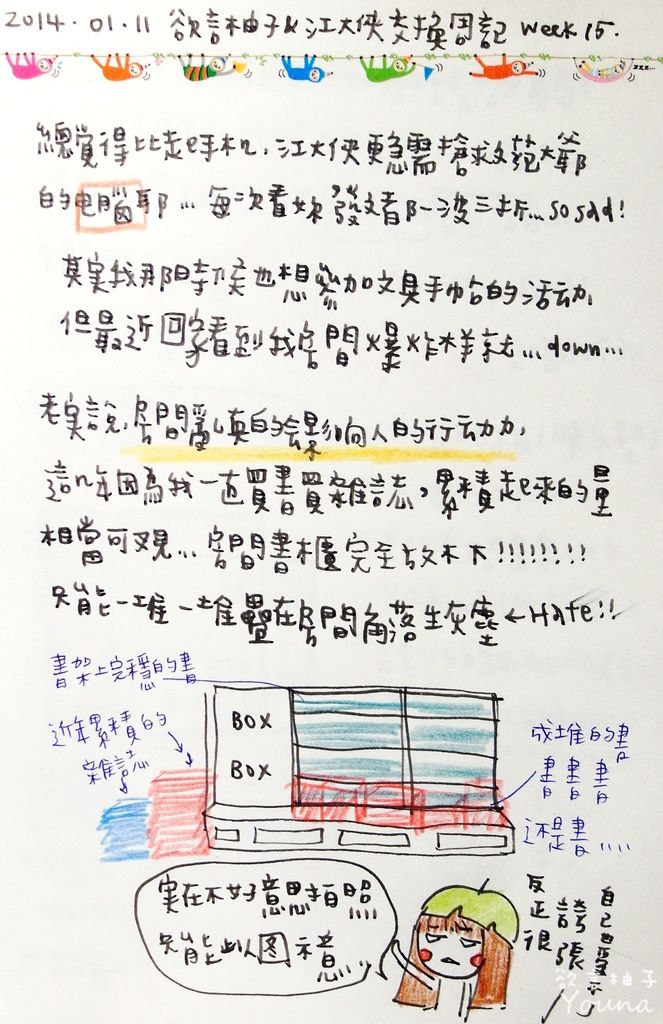 2014.01.11 欲言柚子&江大俠交換周記 week 15.
zzz...
總覺得比起手机，江大俠更急需搶救范大爺
的电腦耶...每次看妳發文都一波三折...so sad!
其實我那時候也想參加文具手帖的活动，
但最近回家看到我房間爆炸樣就...down...
老実說，房間亂真的会影响人的行动力，
這几年因為我一直買書買雜誌，累積起來的量
相當可观...房間書櫃完全放不下!!!!!!!!
只能一堆一堆疊在房間角落生灰塵←Hate!!
書架上完穩的書
近年累積的
雜誌
BOX
BOX
成堆的書
書書書
还是書....
実在不好意思拍照
只能以图示意...
反正很
誇張
自己也
欲言柚子
Youna